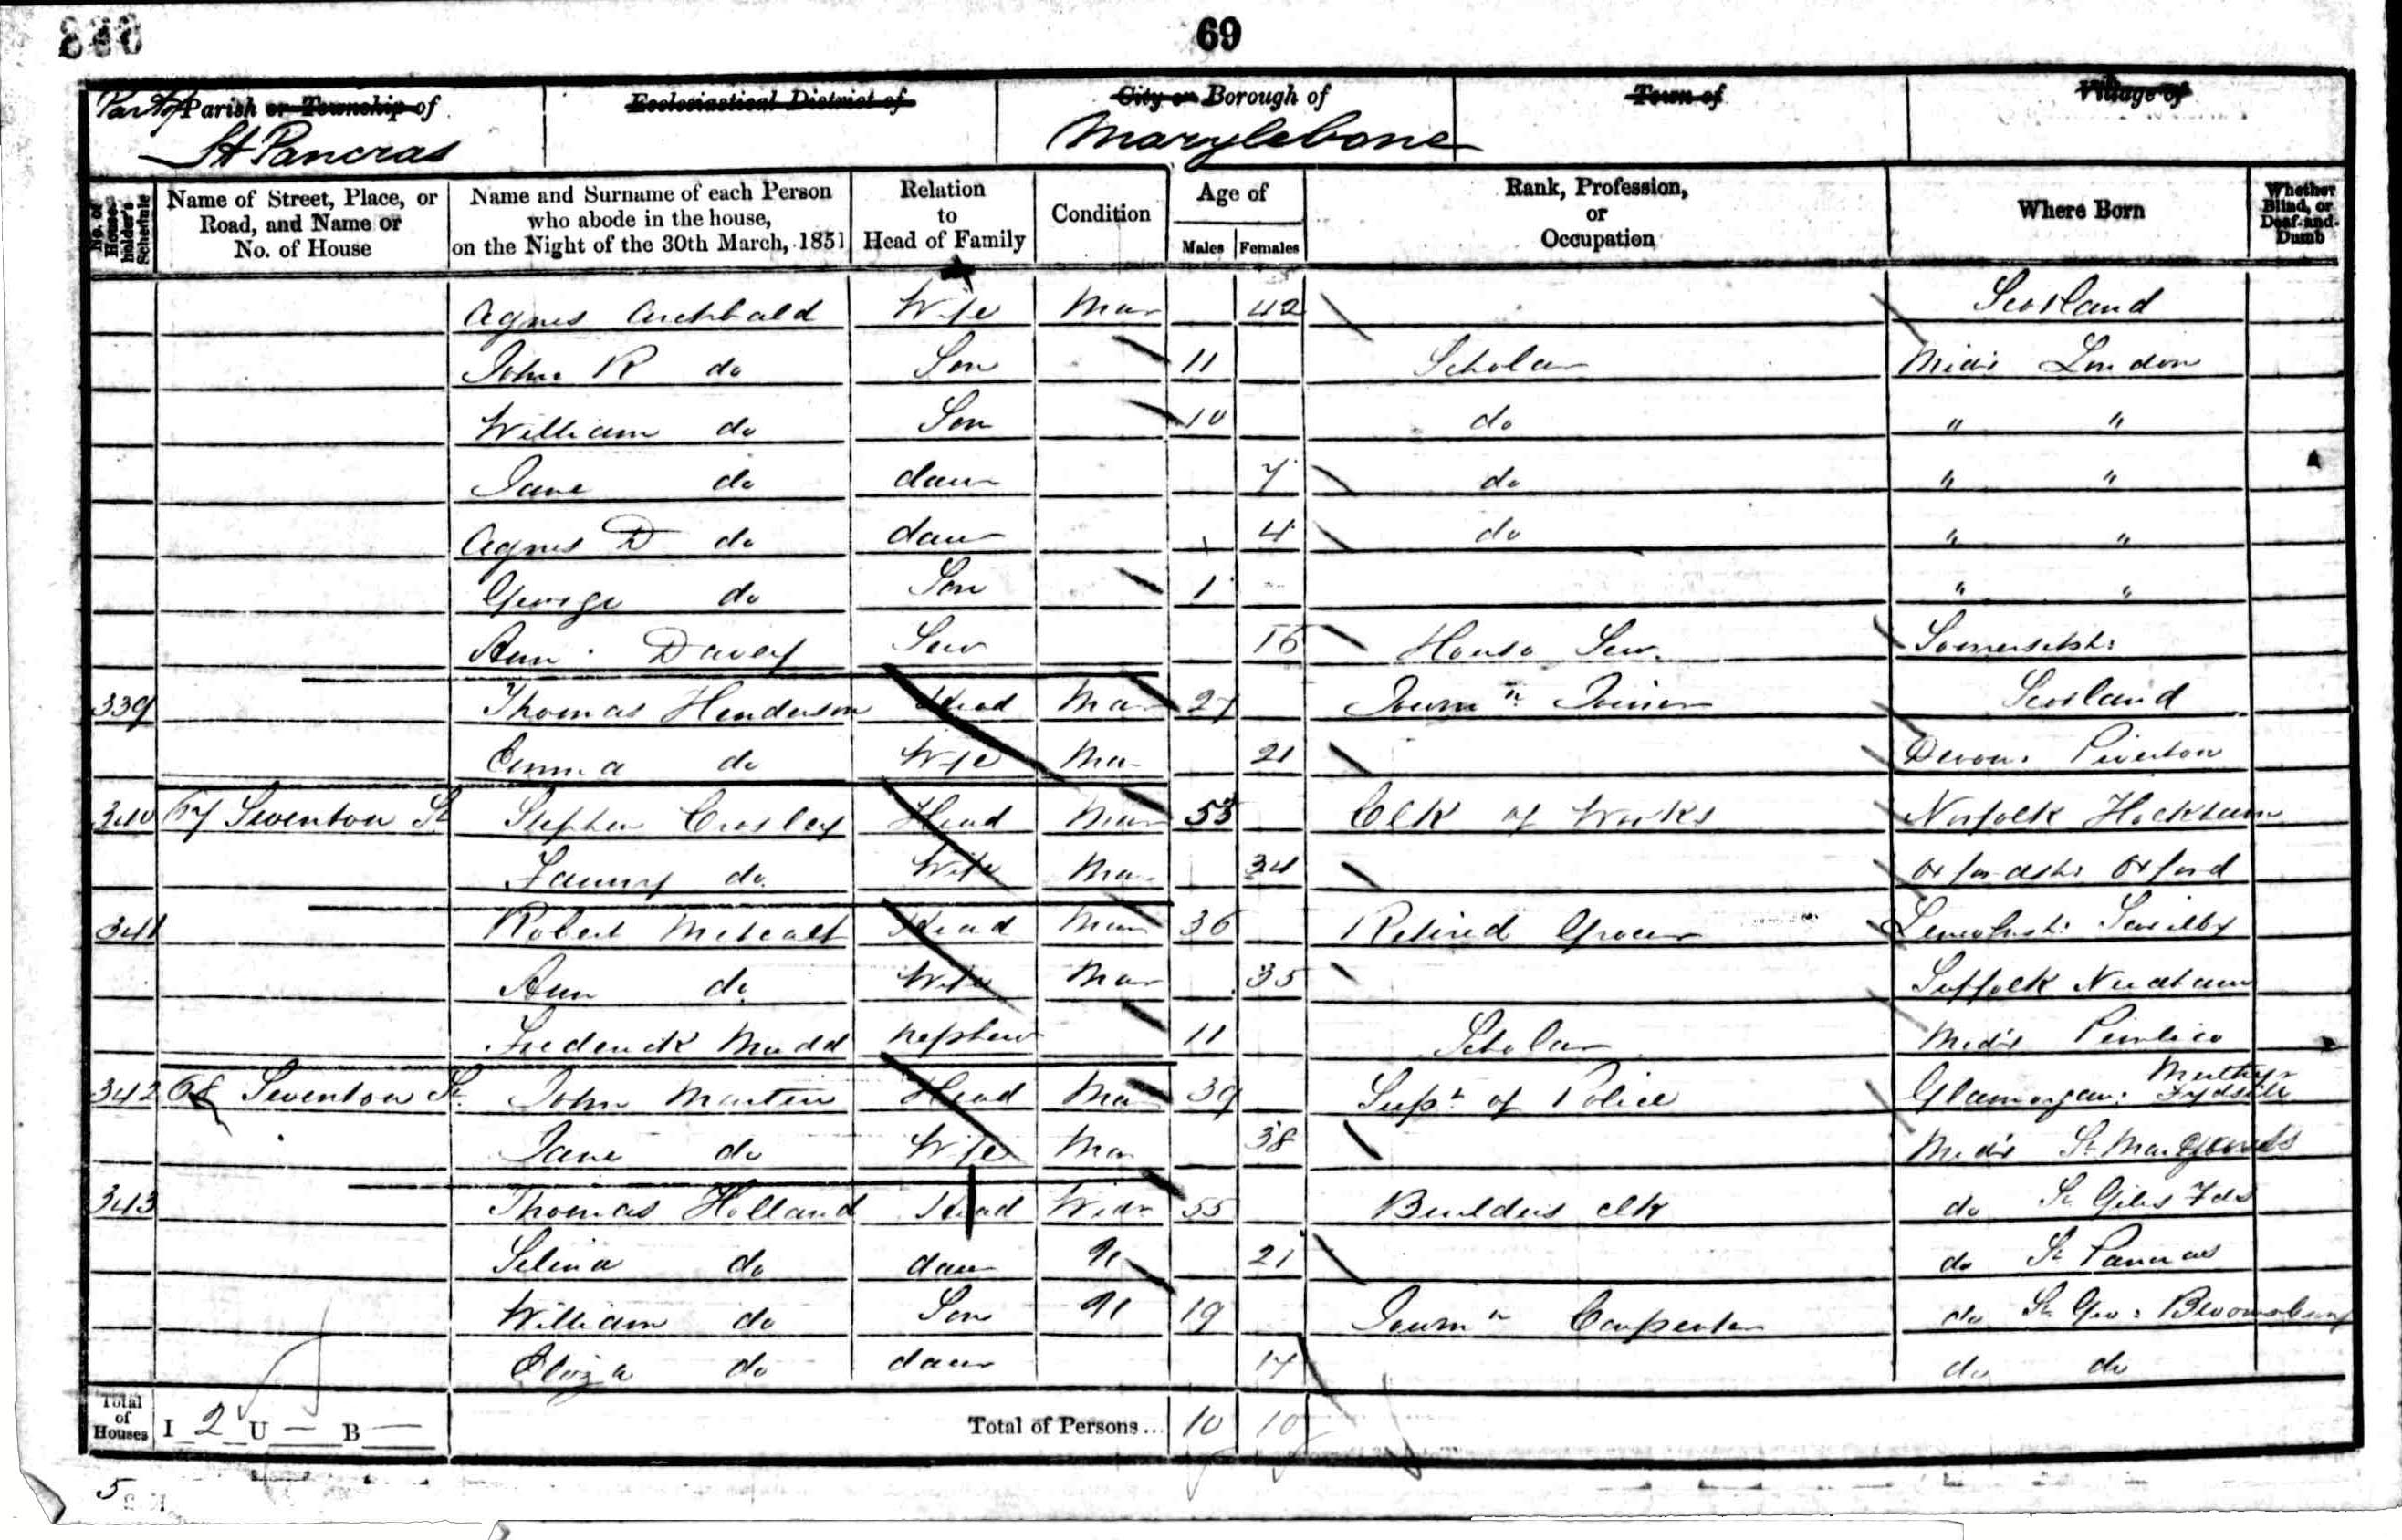 69
Part of Parish or Township of
Ecclesiastical District of
City or Borough of
Town of
Village of
St Pancras
Marylebone
No. of House-holder's Schedule
Name of Street, Place, or Road, and Name or No. of House
Name and Surname of each Person who abode in the house, on the Night of the 30th March, 1851
Relation to Head of Family
Condition
Age of
Males Females
Rank, Profession, or Occupation
Where Born
Whether Blind, or Deaf-and-Dumb
Agnes Archbald Wife Mar 42 Scotland
John R do Son 11 Scholar Midx London
William do Son 10 do " "
Jane do daur 7 do " "
Agnes D do daur 4 do " "
George do Son 1 " "
Ann Davey Serv 16 House Serv. Somersetsh:
339 Thomas Henderson Head Mar 27 Journn Joiner Scotland
Emma do Wife Mar 21 Devon: Tiverton
340 67 Seventon St Stephen Crosley Head Mar 53 Clk of Works Norfolk Hockham
Fanny do Wife Mar 34 Oxfordsh: Oxford
341 Robert Metcalf Head Mar 36 Retired Grocer Lincolnsh:
Ann do Wife Mar 35 Suffolk Needham
Frederick Mudd Nephew 11 Scholar Midx Pimlico
342 68 Seventon St John Martin Head Mar 39 Supt of Police Glamorgan: Merthyr Tydfil
Jane do Wife Mar 38 Midx St Margarets
343 Thomas Holland Head Widr 55 Builders clk do St Giles Fds
Selina do daur U 21 do St Pancras
William do Son U 19 Journn Carpenter do St Geo: Bloomsbury
Eliza do daur 17 do do
Total of Houses I 2 U — B — Total of Persons... 10 10
5